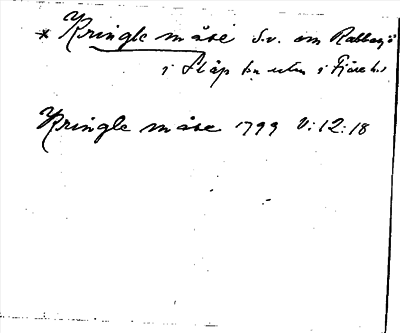 * Kringle måse S.v. om Rabbasjö
i Släp sn utm i Fjäre hd
Kringle måse 1799 V:12:18